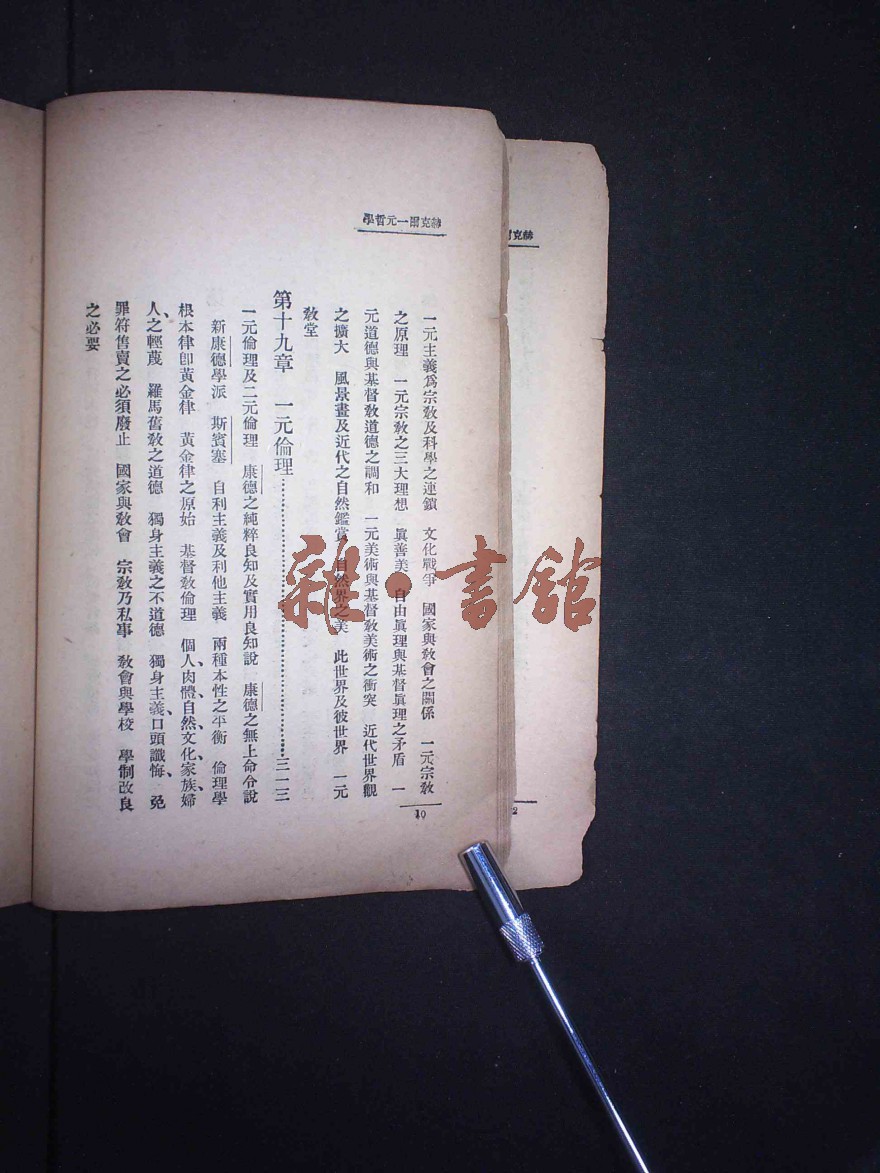 赫克爾一元哲學
一元主義爲宗敎及科學之連鎖　文化戰爭　國家與敎會之關係　一元宗敎
之原理　一元宗敎之三大理想　眞善美　自由眞理與基督眞理之矛盾　一
元道德與基督敎道德之調和　一元美術與基督敎美術之衝突　近代世界觀
之擴大　風景畫及近代之自然鑑賞　自然界之美　此世界及彼世界　一元
敎堂
第十九章　一元倫理……三一三
一元倫理及二元倫理　康德之純粹良知及實用良知說　康德之無上命令說
新康德學派　斯賓塞　自利主義及利他主義　兩種本性之平衡　倫理學
根本律卽黃金律　黃金律之原始　基督敎倫理　個人、肉體、自然、文化、家族、婦
人之輕蔑　羅馬舊敎之道德　獨身主義之不道德　獨身主義、口頭讖悔、免
罪符售賣之必須廢止　國家與敎會　宗敎乃私事　敎會與學校　學制改良
之必要
10
赫克爾
2
雜·書館